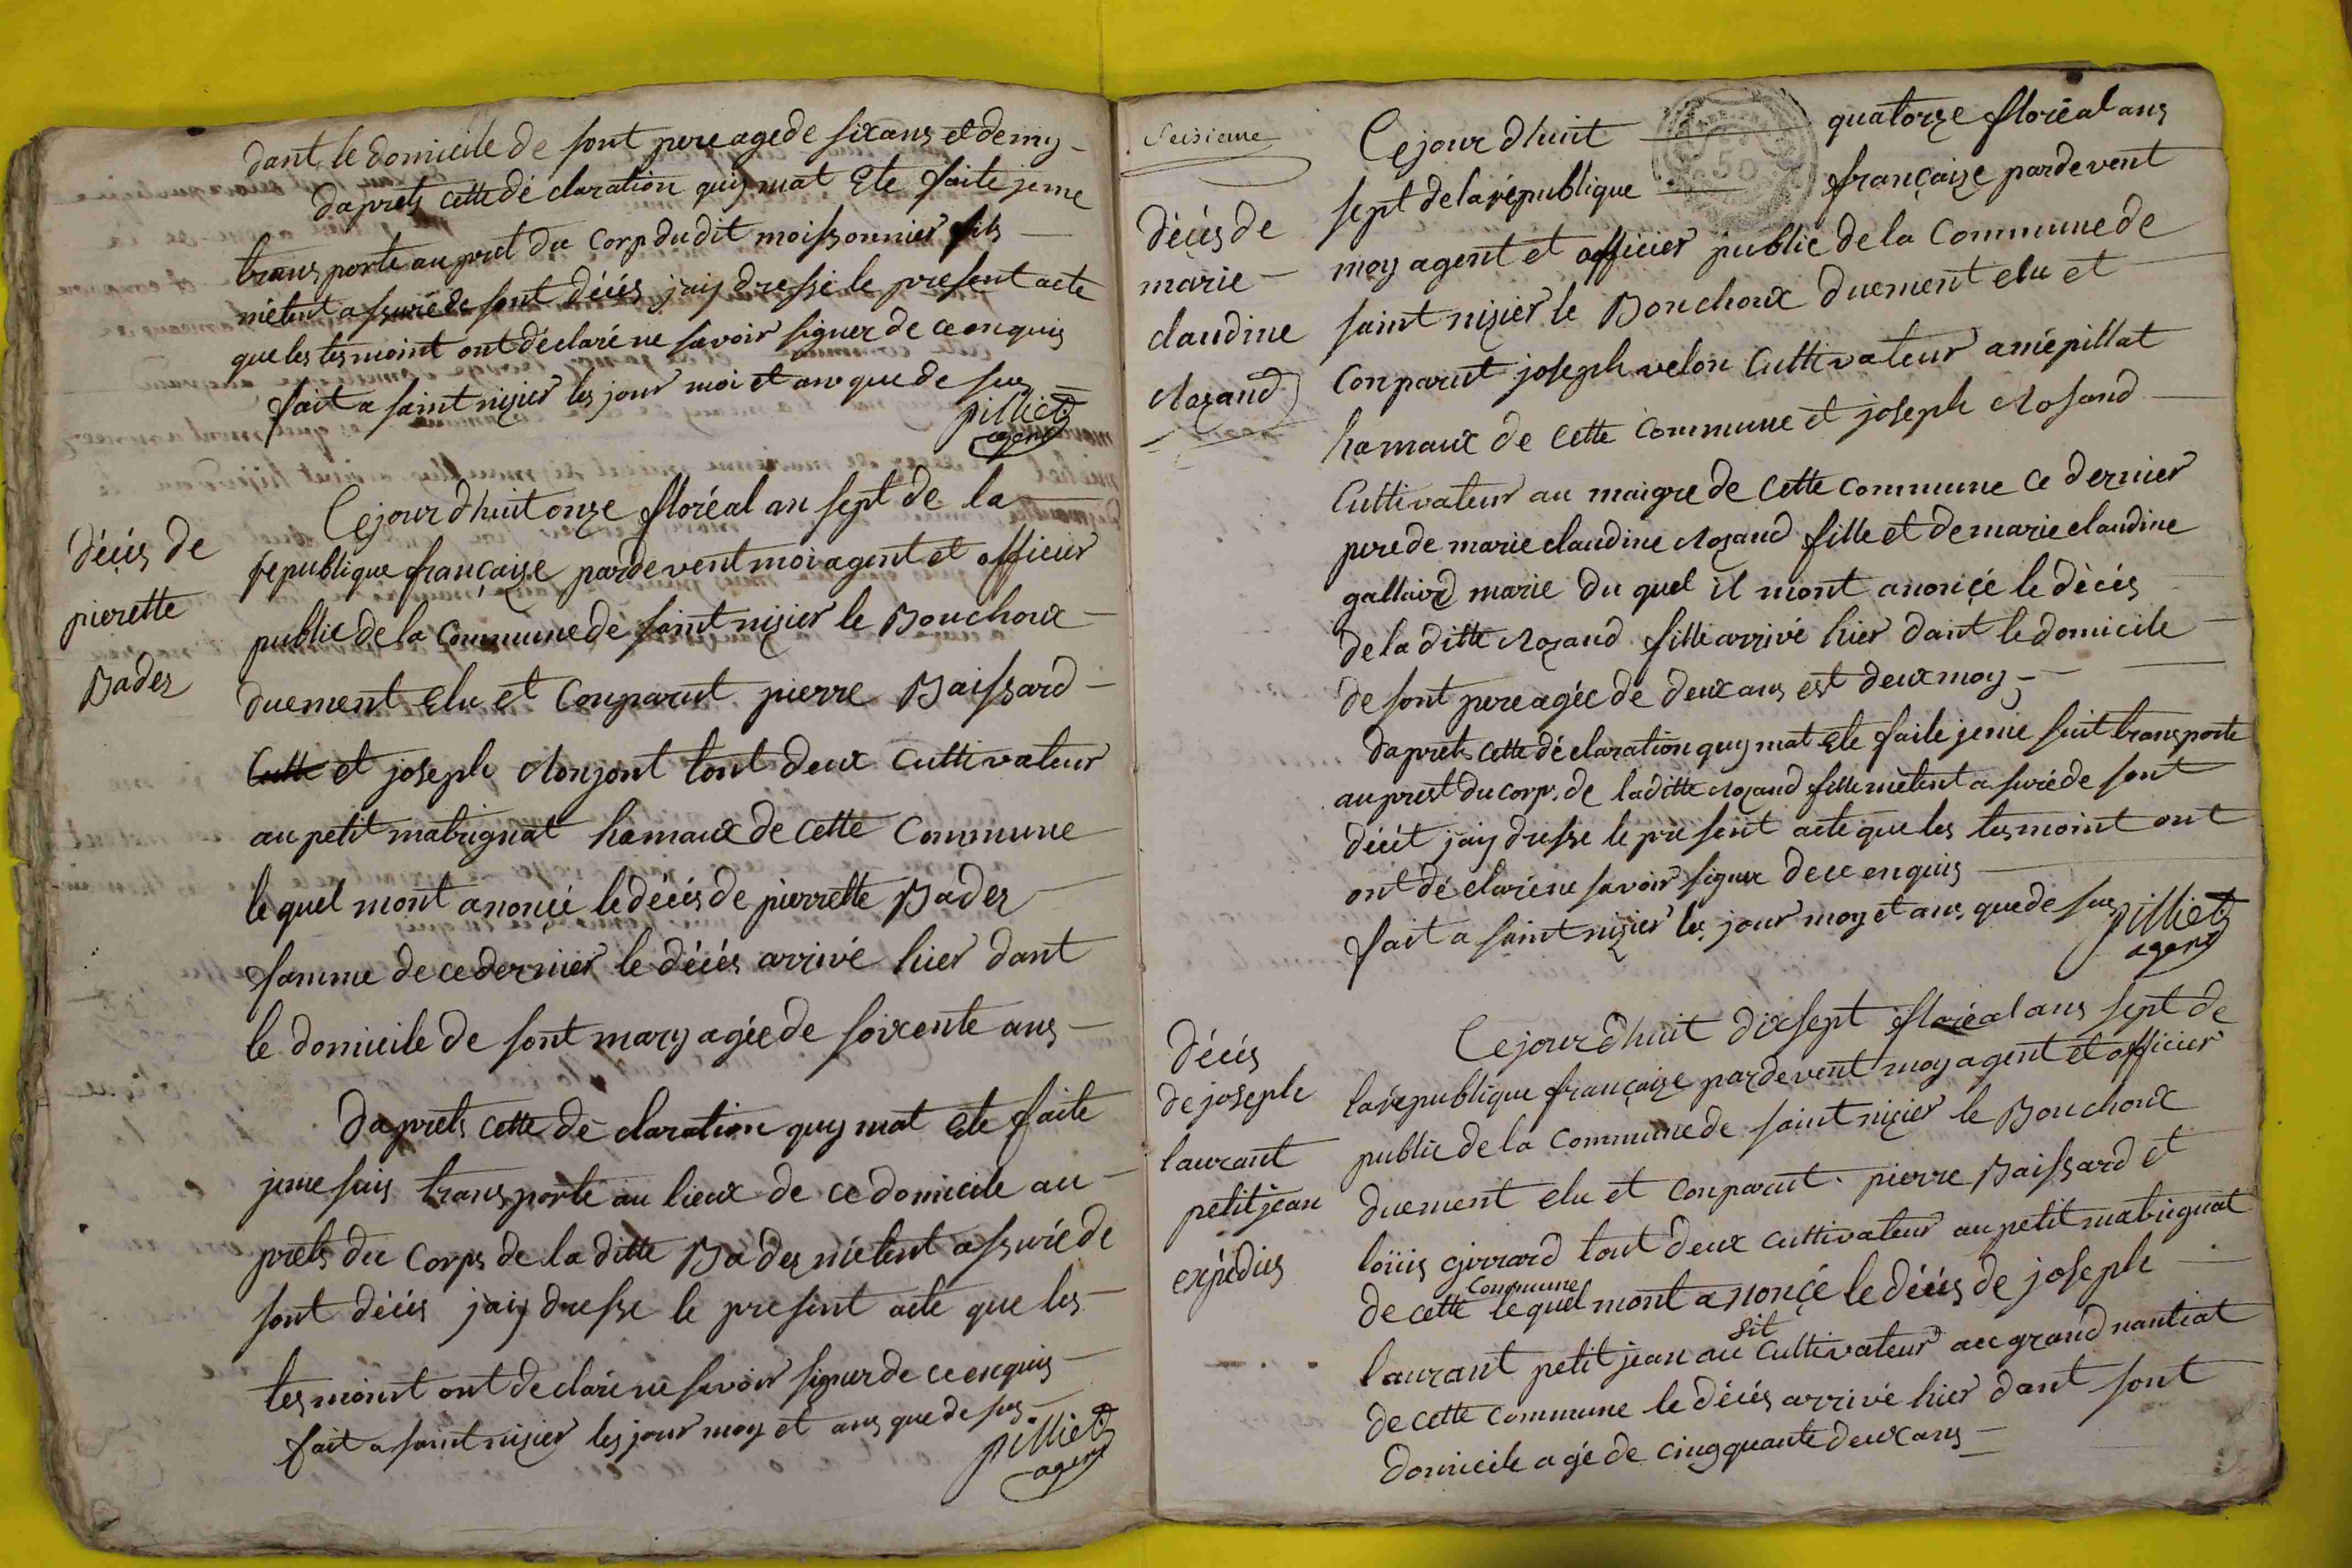 dant le domicile de sont pere agede sixans et demy
daprets cette dé claration quy mat Ete faite jeme
transporte au pret du Corp du dit moissonnier fils
mètent assuré de sont décés jaiy dressé le present acte
que les tesmoint ont déclaré ne savoir signer de ce enquis
fait a saint nizier les jour moi et ans que de sus
pilliet
agent
décés de
pierette
Badez
Cejourdhuit onze floréal an sept de la
republique françaize pardevent moi agent et officier
public de la Commune de saint nizier le Bouchoux
duement Elu et Conparut pierre Baissard
Cutte et joseph Monjont tout deux Cuttivateur
au petit matrignat hamaux de cette Commune
le quel mont anonçé le décés de pierrette Badez
famme de ce dernier le décés arrivé hier dant
le domicile de sont mary agée de soixente ans
daprets cette dé claration quy mat Ete faite
jeme suis transporte au lieux de ce domicile au
prets du Corps de la ditte Badez mètent assuré de
sont décés jaiy dresse le present acte que les
tesmoint ont declaré ne savoir signer de ce enquis
fait a saint nizier les jour moy et ans que de sus
pilliet
agent
Seisieme
décés de
marie
claudine
Mozand
Cejourdhuit quatorze floréal ans
sept de la république française pardevent
moy agent et officier public de la Commune de
saint nizier le Bouchoux duement elu et
Conparut joseph velon Cuttivateur a mépillat
hamaux de cette Commune et joseph Mosand
Cuttivateur au maigre de cette commune ce dernier
pere de marie claudine Mozand fille et de marie claudine
galliard marie du quel il mont anonçé le décés
de la ditte Mozand fille arrivé hier dant le domicile
de sont pere agée de deux ans est deux moy
daprets cette déclaration quy mat Ete faite jeme suit transporte
au prest du corps de la ditte Mozand fille mètent asuré de sont
décét jaiy dresse le present acte que les tesmoint ont
ont déclaré ne savoir signer de ce enquis
fait a saint nizier les jour moy et ans que de sus
pilliet
agent
décés
de joseph
laurant
petitjean
expédiés
Cejourdhuit dixsept floréal ans sept de
la république françaize pardevent moy agent et officier
public de la Commune de saint nizier le Bouchoux
duement elu et Conparut pierre Baissard et
loüis girrard tout deux cuttivateur au petit matrignat
Commune
de cette lequel mont anonçé le décés de joseph
dit
laurant petit jean au Cuttivateur au grand nantiat
de cette Commune le décés arrivé hier dant sont
domicile agé de cinqquante deux ans